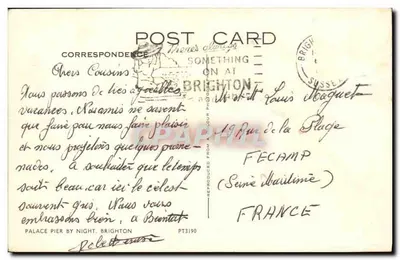 POST CARD
CORRESPONDENCE
There's always
SOMETHING
ON AT
BRIGHTON
BRIGH
SUSSEX
Chers Cousins
Nous passons de très agréables
vacances. Nos amis ne savent
que faire pour nous faire plaisir
et nous projetons quelques prome-
nades. A souhaiter que le temps
soit beau, car ici le ciel est
souvent gris. Nous vous
embrassons bien, à Bientôt
M et Mme Louis Maguet
19 Rue de la Plage
FECAMP
(Seine Maritime)
FRANCE
PALACE PIER BY NIGHT, BRIGHTON
PT2190